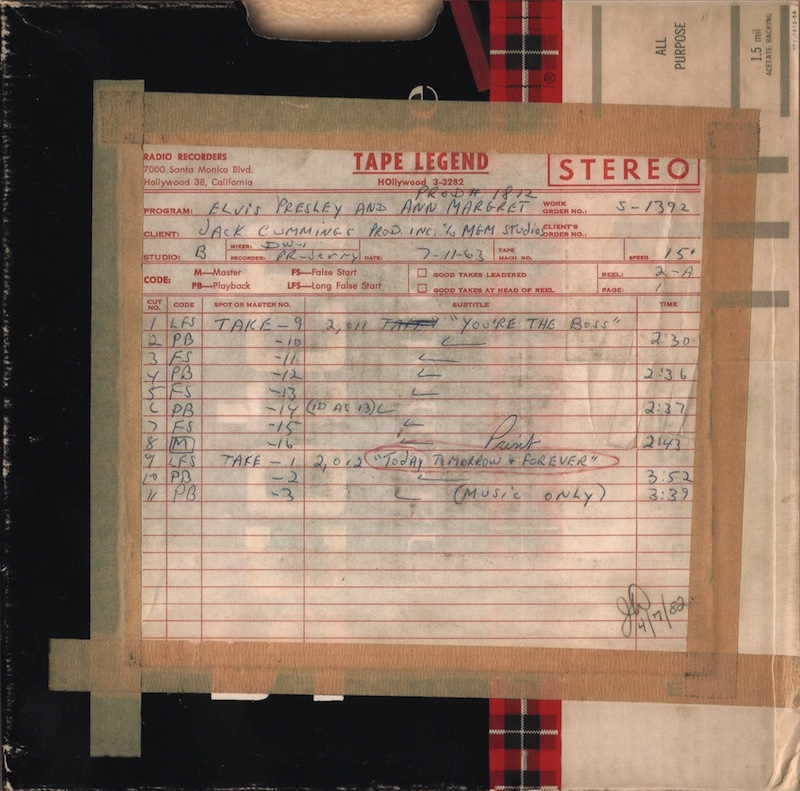 ALL PURPOSE
1.5 mil ACETATE BACKING
RADIO RECORDERS
7000 Santa Monica Blvd.
Hollywood 38, California
TAPE LEGEND
HOllywood 3-3282
STEREO
PROD# 1812
PROGRAM: ELVIS PRESLEY AND ANN MARGRET WORK ORDER NO.: S-1392
CLIENT: JACK CUMMINGS PROD. INC. % MGM STUDIOS CLIENT'S ORDER NO.:
STUDIO: B MIXER: DW-1 RECORDER: PR-Jerry DATE: 7-11-63 TAPE MACH. NO. SPEED 15"
CODE: M—Master FS—False Start GOOD TAKES LEADERED REEL: 2-A
PB—Playback LFS—Long False Start GOOD TAKES AT HEAD OF REEL PAGE: 1
CUT NO. CODE SPOT OR MASTER NO. SUBTITLE TIME
1 LFS TAKE-9 2,011 "YOU'RE THE BOSS"
2 PB -10 2:30
3 FS -11
4 PB -12 2:36
5 FS -13
6 PB -14 (ID AS 13) 2:37
7 FS -15
8 M -16 Print 2:43
9 LFS TAKE-1 2,012 "TODAY TOMORROW + FOREVER"
10 PB -2 3:52
11 PB -3 (MUSIC ONLY) 3:39
4/7/82